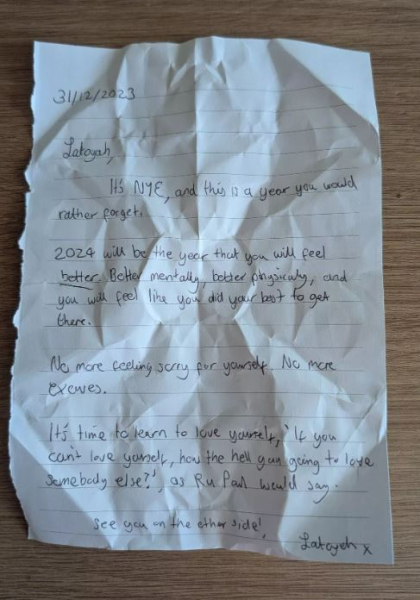 31/12/2023
Latoyah,
It's NYE, and this is a year you would
rather forget.
2024 will be the year that you will feel
better. Better mentally, better physically, and
you will feel like you did your best to get
there.
No more feeling sorry for yourself. No more
excuses.
It's time to learn to love yourself, 'If you
can't love yourself, how the hell gun going to love
somebody else?', as Ru Paul would say.
See you on the other side!
Latoyah x